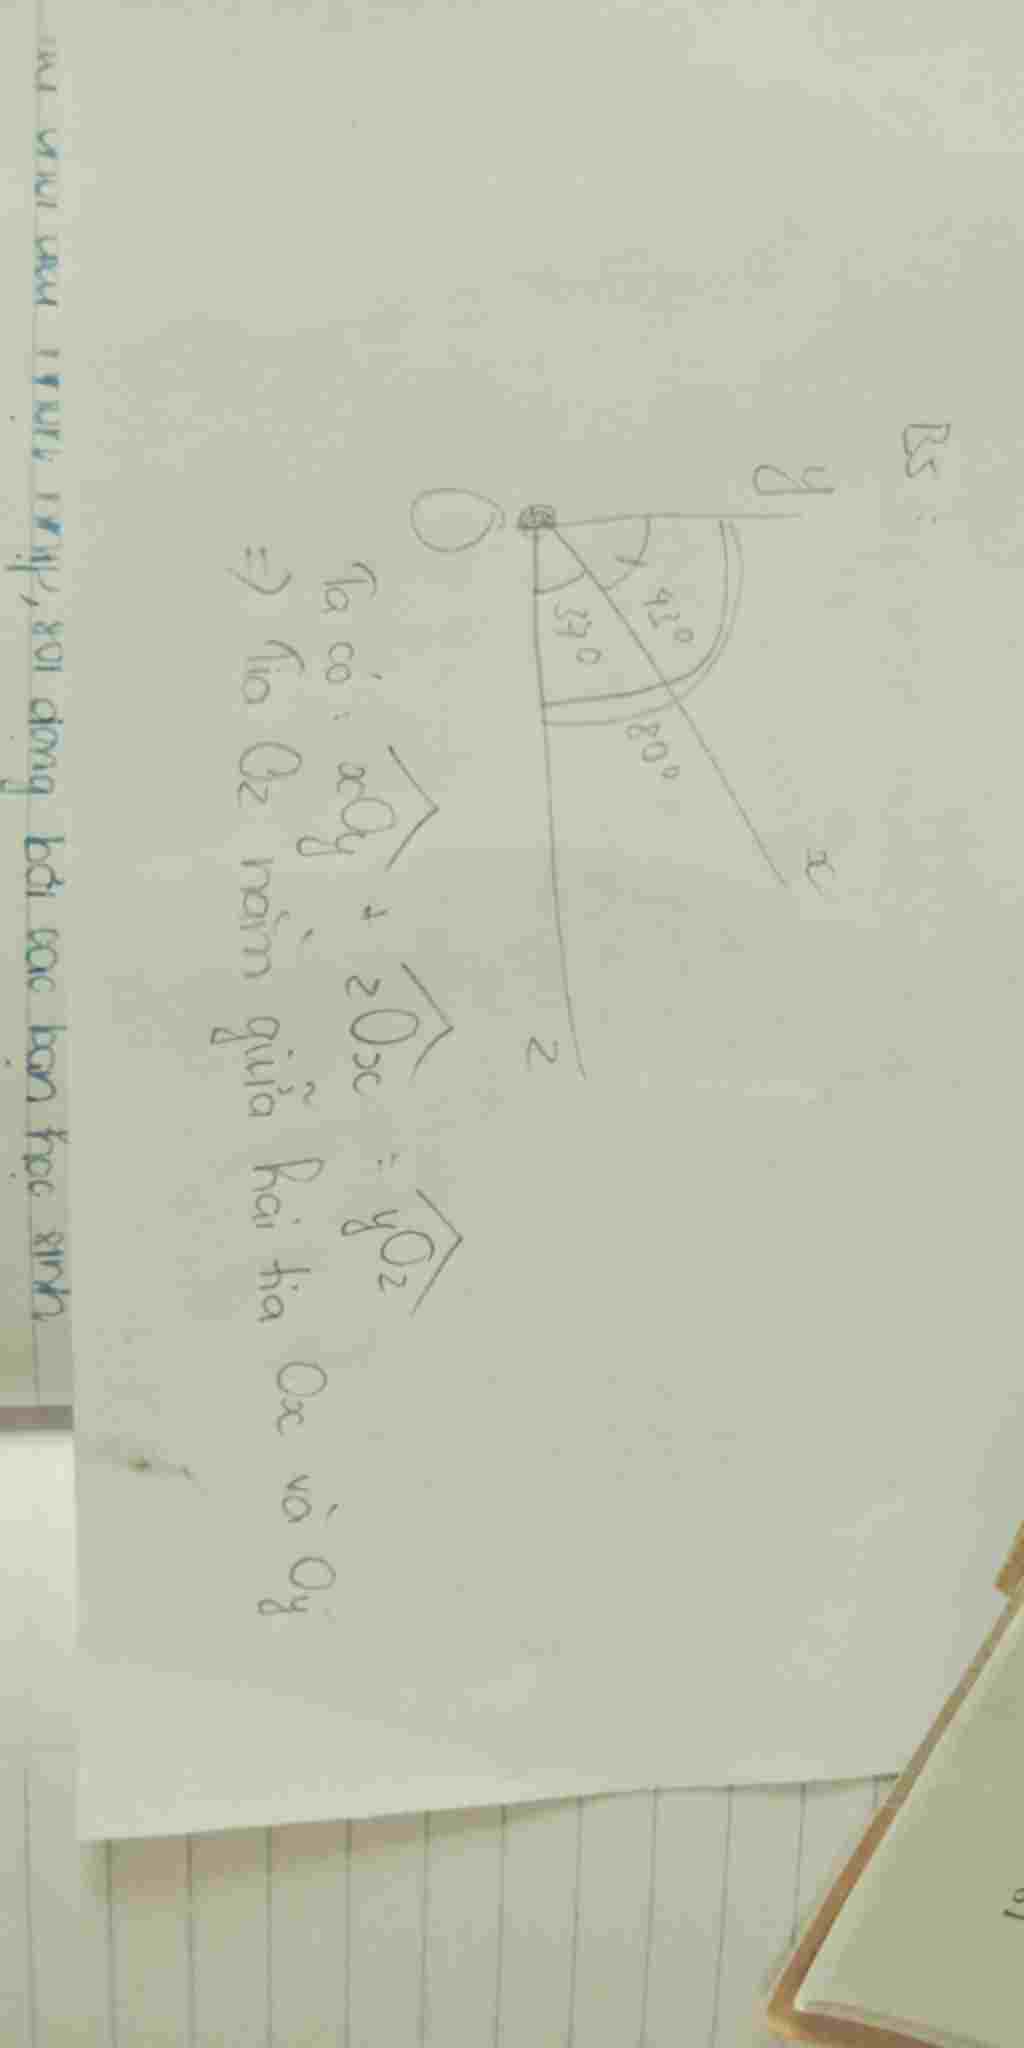 B5 :
y
x
43°
37°
80°
O
z
Ta có : xOy + zOx = yOz
=> Tia Oz nằm giữa hai tia Ox và Oy
sôi động bởi các bạn học sinh